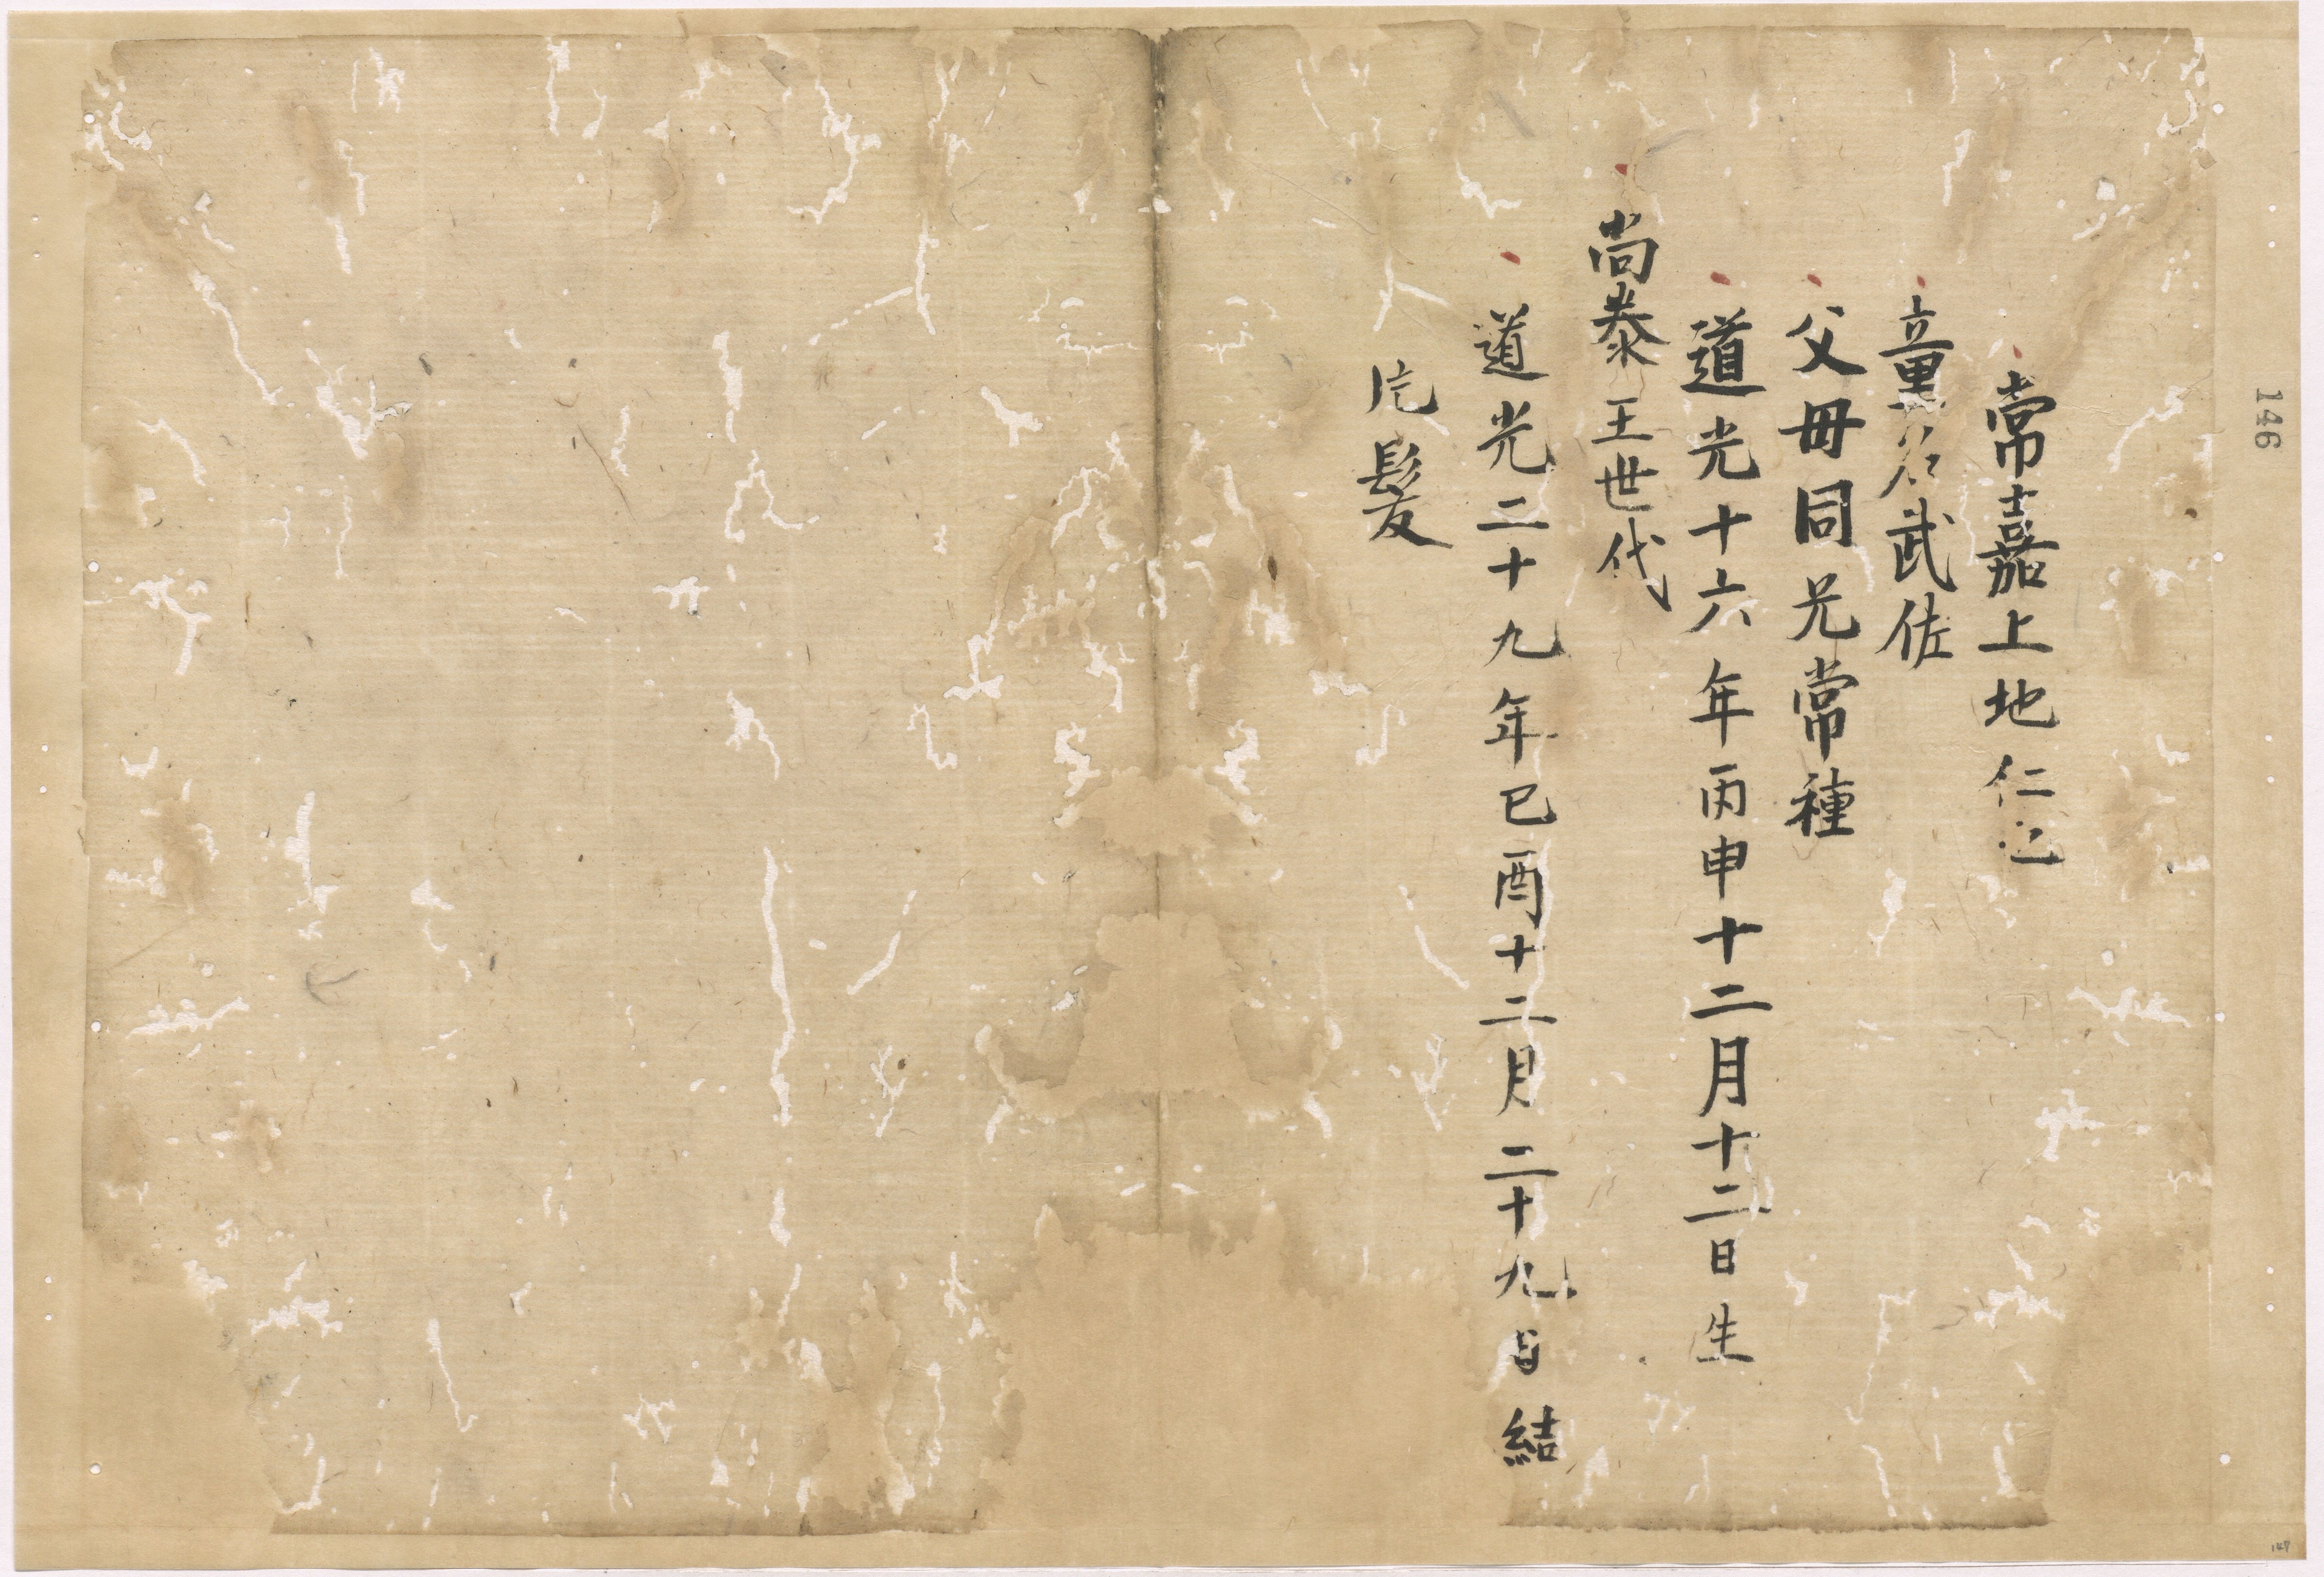 常嘉上地仁也
童名武佐
父毋同兄常種
道光十六年丙申十二月十二日生
尚泰王世代
道光二十九年已酉十二月二十九日結
片髪
146
147